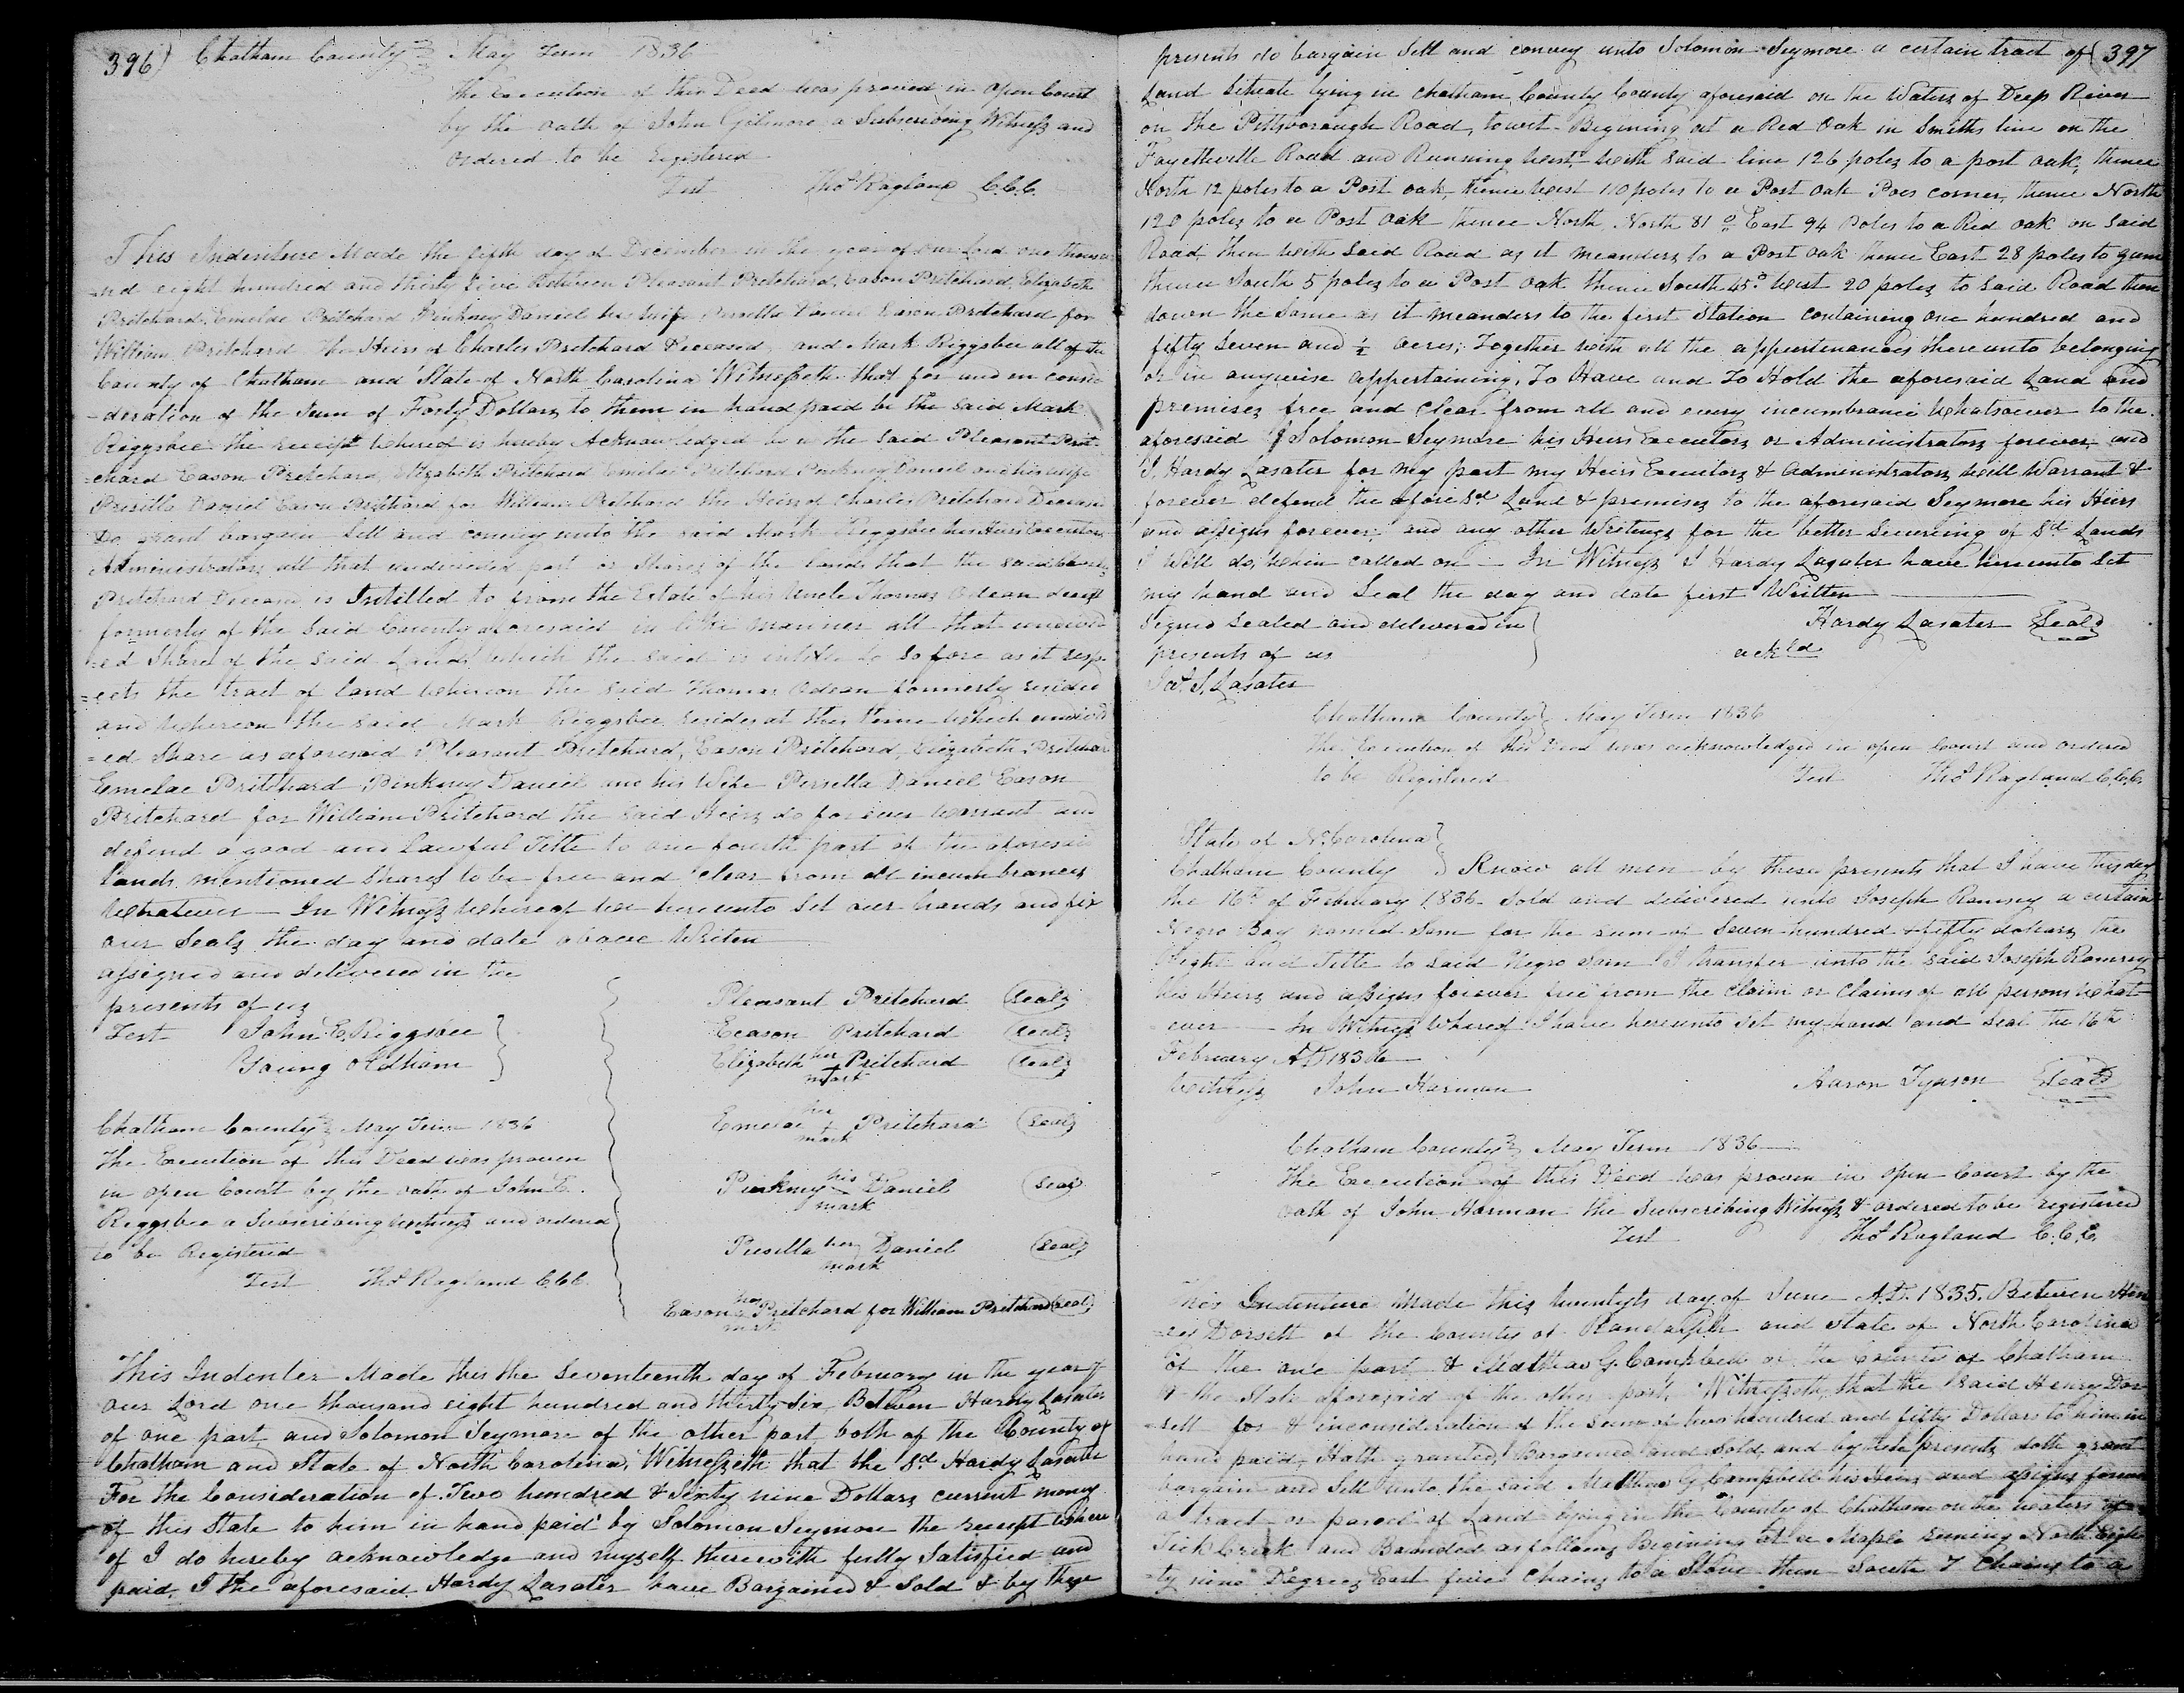 396) Chatham County } May Term 1836
The Execution of this Deed was proved in open Court
by the oath of John Gilmore a Subscribing Witness and
Ordered to be Registered
Test Thos Ragland C.C.C.
This Indenture Made the fifth day of December in the year of our Lord one thousa
=nd eight hundred and thirty five Between Pleasant Pritchard, Eason Pritchard, Elizabeth
Pritchard, Emelae Pritchard Pinkney Daniel his wife Persilla Daniel Eason Pritchard for
William Pritchard the Heirs of Charles Pritchard Deceased, and Mark Riggsbee all of the
County of Chatham and State of North Carolina Witnesseth that for and in consi
-deration of the Sum of Forty Dollars to them in hand paid by the said Mark
Riggsbee the receipt whereof is hereby Acknowledged we the said Pleasant Prit
=chard Eason Pritchard, Elizabeth Pritchard Emelae Pritchard Pinkney Daniel and his wife
Prisilla Daniel Eason Pritchard for William Pritchard the Heirs of Charles Pritchard Deceased
Do grant bargain Sell and convey unto the said Mark Riggsbee his Heirs Executors
Administrators all that undivided part or Shares of the lands that the said Charles
Pritchard Deceasd is Intitled to from the Estate of his Uncle Thomas Odean deceasd
formerly of the said County aforesaid in like manner all that undivid
=ed Share of the said Lands which the said is intitle to so fore as it resp
=ects the tract of land whereon the said Thomas Odean formerly resided
and whereon the said Mark Riggsbee resides at this time which undivid
=ed Share as aforesaid Pleasant Pritchard, Eason Pritchard, Elizabeth Pritchar
Emelae Pritchard Pinkney Daniel and his Wife Persilla Daniel Eason
Pritchard for William Pritchard the said Heirs do forever warrant and
defend a good and Lawful Title to one fourth part of the aforesaid
lands mentioned Shares to be free and Clear from all incumbrances
whatever — In Witness whereof we hereunto Set our hands and fix
our Seals the day and date above Writen
assigned and delivered in the
presents of us
Test John C. Riggsbee
Young Oldham
Pleasant Pritchard (Seal)
Eeason Pritchard (Seal)
Elizabeth her + mark Pritchard (Seal)
Emelae her + mark Pritchard (Seal)
Pinkney his mark Daniel (Seal)
Presilla her mark Daniel (Seal)
Eason his mark Pritchard for William Pritchard (Seal)
Chatham County } May Term 1836
The Execution of this Deed was proven
in open Court by the oath of John C.
Riggsbee a Subscribing witness and ordered
to be Registered
Test Thos Ragland C.C.C.
This Indenter Made this the Seventeenth day of February in the year of
our Lord one thousand eight hundred and thirty Six Between Hardy Lasater
of one part, and Solomon Seymore of the other part both of the County of
Chatham and State of North Carolina, Witnesseth that the Sd Hardy Lasater
For the Consideration of Two hundred & Sixty nine Dollars current money
of this State to him in hand paid by Solomon Seymore the receipt where
of I do hereby acknowledge and myself therewith fully Satisfied and
paid, I the aforesaid Hardy Lasater have Bargained & Sold & by these
presents do bargain Sell and convey unto Solomon Seymore a certain tract of (397
Land Situate lying in Chatham County County aforesaid on the Waters of Deep River
on the Pittsborough Road, towit- Begining at a Red Oak in Smiths line on the
Fayetteville Road and Running West with said line 126 poles to a post oak, thence
North 12 poles to a Post oak, thence West 110 poles to a Post oak Poes corner, thence North
120 poles to a Post oak thence North, North 81° East 94 Poles to a Red oak on said
Road, then with Said Road as it meanders to a Post oak thence East 28 poles to gum
thence South 5 poles to a Post oak thence South 45° West 20 poles to said Road then
down the Same as it meanders to the first Station containing one hundred and
fifty Seven and ½ acres; Together with all the appurtenances thereunto belonging
or in anywise appertaining, To Have and To Hold the aforesaid Land and
premises free and clear from all and every incumbrance Whatsoever to the
aforesaid Solomon Seymore his Heirs Executors or Administrators forever, and
I, Hardy Lasater for my part my Heirs Executors & Administrators will Warrant &
forever defend the afore Sd Land & premises to the aforesaid Seymore his Heirs
and assigns forever, and any other Writings for the better Securing of Sd Lands
I Will do, when called on — In Witness I Hardy Lasater have hereunto Set
my hand and Seal the day and date first Written
Signed Sealed and delivered in
presents of us
Hardy Lasater (Seal)
ackld
Jas. S. Lasater
Chatham County } May Term 1836
The Execution of this Deed was acknowledged in open Court and ordered
to be Registered Test Thos Ragland C.C.C.
State of N. Carolina
Chatham County } Know all men by these presents that I have this day
the 16th of February 1836 Sold and delivered unto Joseph Ramsey a certain
Negro Boy named Sam for the sum of Seven hundred & fifty dollars the
Right and Title to said Negro Sam I transfer unto the said Joseph Ramsey
his Heirs and assigns forever free from the Claim or Claims of all persons What-
ever — In Witness Whereof I have hereunto set my hand and Seal the 16th
February AD 1836
Witness John Harman Aaron Tyason (Seal)
Chatham County } May Term 1836
The Execution of this Deed was proven in open Court by the
oath of John Harman the Subscribing Witness & ordered to be registered
Test Thos Ragland C.C.C.
This Indenture Made this twentyth day of June A.D. 1835. Between Hen
=ry Dorsett of the County of Randalph and State of North Carolina
of the one part & Mathew G. Campbell of the County of Chatham
& the State aforesaid of the other part, Witnesseth, that the said Henry Dor
=sett for & inconsideration of the Sum of two hundred and fifty Dollars to him in
hand paid, Hath granted, Bargained and Sold, and by these presents doth grant
bargain and Sell unto the said Mathew G. Campbell his Heirs and assigns forever
a tract or parcel of Land lying in the County of Chatham on the waters of
Tick Creek and Bounded as follows Begining at a Maple runing North Eigh
=ty nine Degrees East five Chains to a Stone then South 7 Chains to a